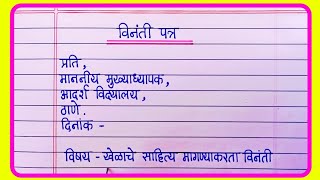 विनंती पत्र
प्रति,
माननीय मुख्याध्यापक,
आदर्श विद्यालय,
ठाणे.
दिनांक -
विषय - खेळाचे साहित्य मागण्याकरता विनंती